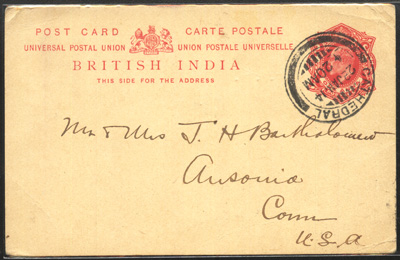 POST CARD CARTE POSTALE
UNIVERSAL POSTAL UNION UNION POSTALE UNIVERSELLE
BRITISH INDIA
THIS SIDE FOR THE ADDRESS
CATHEDRAL
Mr & Mrs J. H Bartholomew
Ansonia
Conn
U.S.A